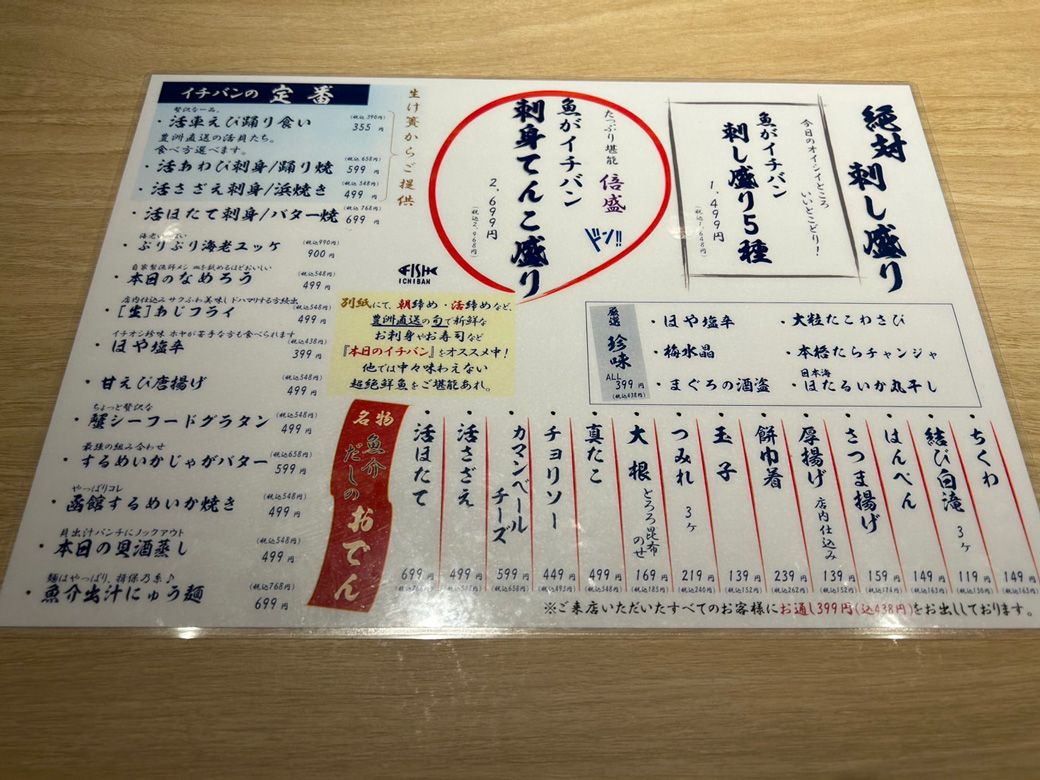 絶対 刺し盛り
今日のオイシイところ
いいとこどり！
魚がイチバン
刺し盛り5種
1,499円
(税込1,648円)
たっぷり堪能 倍盛
ドーン!!
魚がイチバン
刺身てんこ盛り
2,699円
(税込2,968円)
イチバンの 定番
生け簀からご提供
贅沢な一品。
・活車えび踊り食い (税込390円) 355円
豊洲直送の活貝たち。
食べ方選べます。
・活あわび刺身/踊り焼 (税込658円) 599円
・活さざえ刺身/浜焼き (税込548円) 499円
・活ほたて刺身/バター焼 (税込768円) 699円
・ぷりぷり海老ユッケ (税込990円) 900円
・本日のなめろう (税込548円) 499円
店内仕込み サクふわ美味し ドハマりする方続出
・[生]あじフライ (税込548円) 499円
イチオシ珍味 ホヤが苦手な方も食べられます
・ほや塩辛 (税込438円) 399円
・甘えび唐揚げ (税込548円) 499円
ちょっと贅沢な
・蟹シーフードグラタン (税込548円) 499円
最強の組み合わせ
・するめいかじゃがバター (税込658円) 599円
やっぱりコレ
・函館するめいか焼き (税込548円) 499円
貝出汁パンチにノックアウト
・本日の貝酒蒸し (税込548円) 499円
麺はやっぱり、揖保乃糸♪
・魚介出汁にゅう麺 (税込768円) 699円
FISH
ICHIBAN
別紙にて、朝締め・活締めなど、
豊洲直送の旬で新鮮な
お刺身やお寿司など
『本日のイチバン』をオススメ中！
他では中々味わえない
超絶鮮魚をご堪能あれ。
厳選 珍味
ALL 399円
(税込438円)
・ほや塩辛
・大粒たこわさび
・梅水晶
・本格たらチャンジャ
・まぐろの酒盗
日本海
・ほたるいか丸干し
名物 魚介だしのおでん
・ちくわ 149円 (税込163円)
・結び白滝 3ヶ 119円 (税込130円)
・はんぺん 149円 (税込163円)
・さつま揚げ 159円 (税込174円)
・厚揚げ 店内仕込み 139円 (税込152円)
・餅巾着 239円 (税込262円)
・玉子 139円 (税込152円)
・つみれ 3ヶ 219円 (税込240円)
・大根 とろろ昆布のせ 169円 (税込185円)
・真たこ 499円 (税込548円)
・チョリソー 449円 (税込493円)
・カマンベールチーズ 599円 (税込658円)
・活さざえ 499円 (税込548円)
・活ほたて 699円 (税込768円)
※ご来店いただいたすべてのお客様にお通し399円(込438円)をお出ししております。